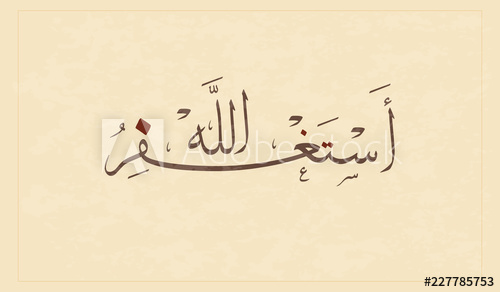 أَسْتَغْفِرُ اللَّه
Adobe Stock
#227785753